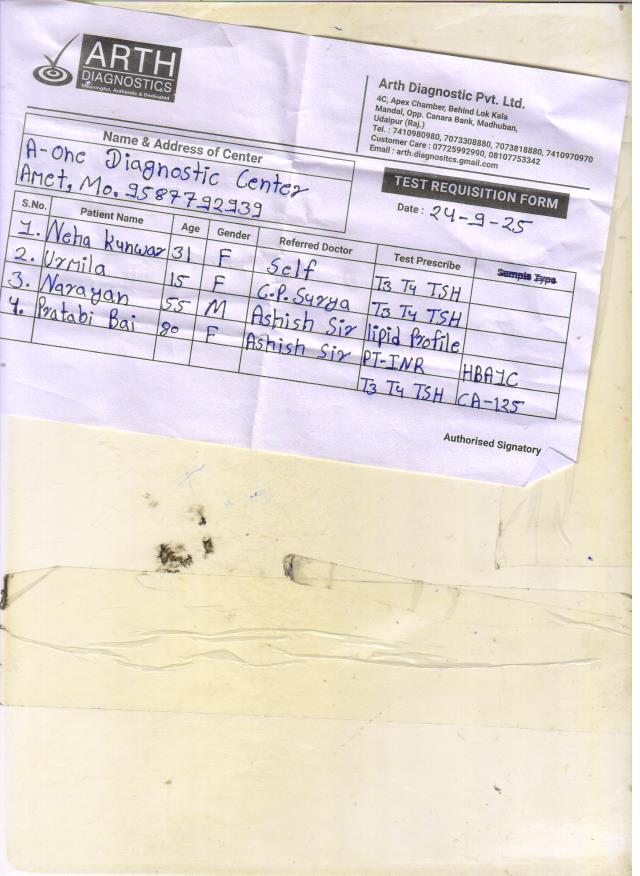 ARTH
DIAGNOSTICS
Meaningful, Authentic & Dedicated
Arth Diagnostic Pvt. Ltd.
4C, Apex Chamber, Behind Lok Kala
Mandal, Opp. Canara Bank, Madhuban,
Udaipur (Raj.)
Tel. : 7410980980, 7073308880, 7073818880, 7410970970
Customer Care : 07725992990, 08107753342
Email : arth.diagnositcs.gmail.com
Name & Address of Center
A-One Diagnostic Center
Amet, Mo. 9587792939
TEST REQUISITION FORM
Date : 24-9-25
S.No. Patient Name Age Gender Referred Doctor Test Prescribe Sample Type
1. Neha Kunwar 31 F Self T3 T4 TSH
2. Urmila 15 F C.P. Surya T3 T4 TSH
3. Narayan 55 M Ashish Sir lipid Profile
4. Pratabi Bai 80 F Ashish Sir PT-INR HBA1C
T3 T4 TSH CA-125
Authorised Signatory